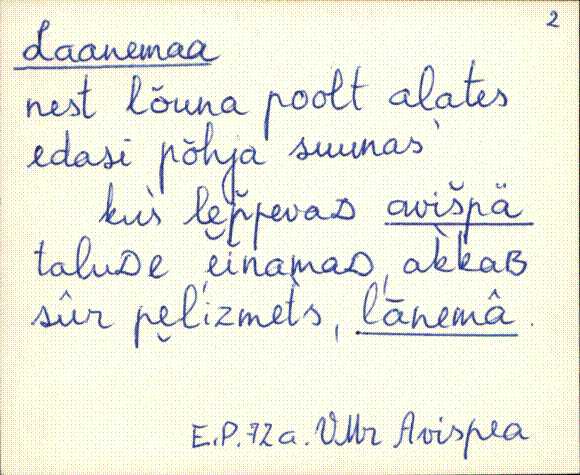 2
Laanemaa
nest lõuna poolt alates
edasi põhja suunas
kus̀ lep̆pevaD avišpä
taluDe, einamaD, ak̀kaB
sûr pelizmet̀s, lānemâ.
E.P. 72 a. VMr Avispea